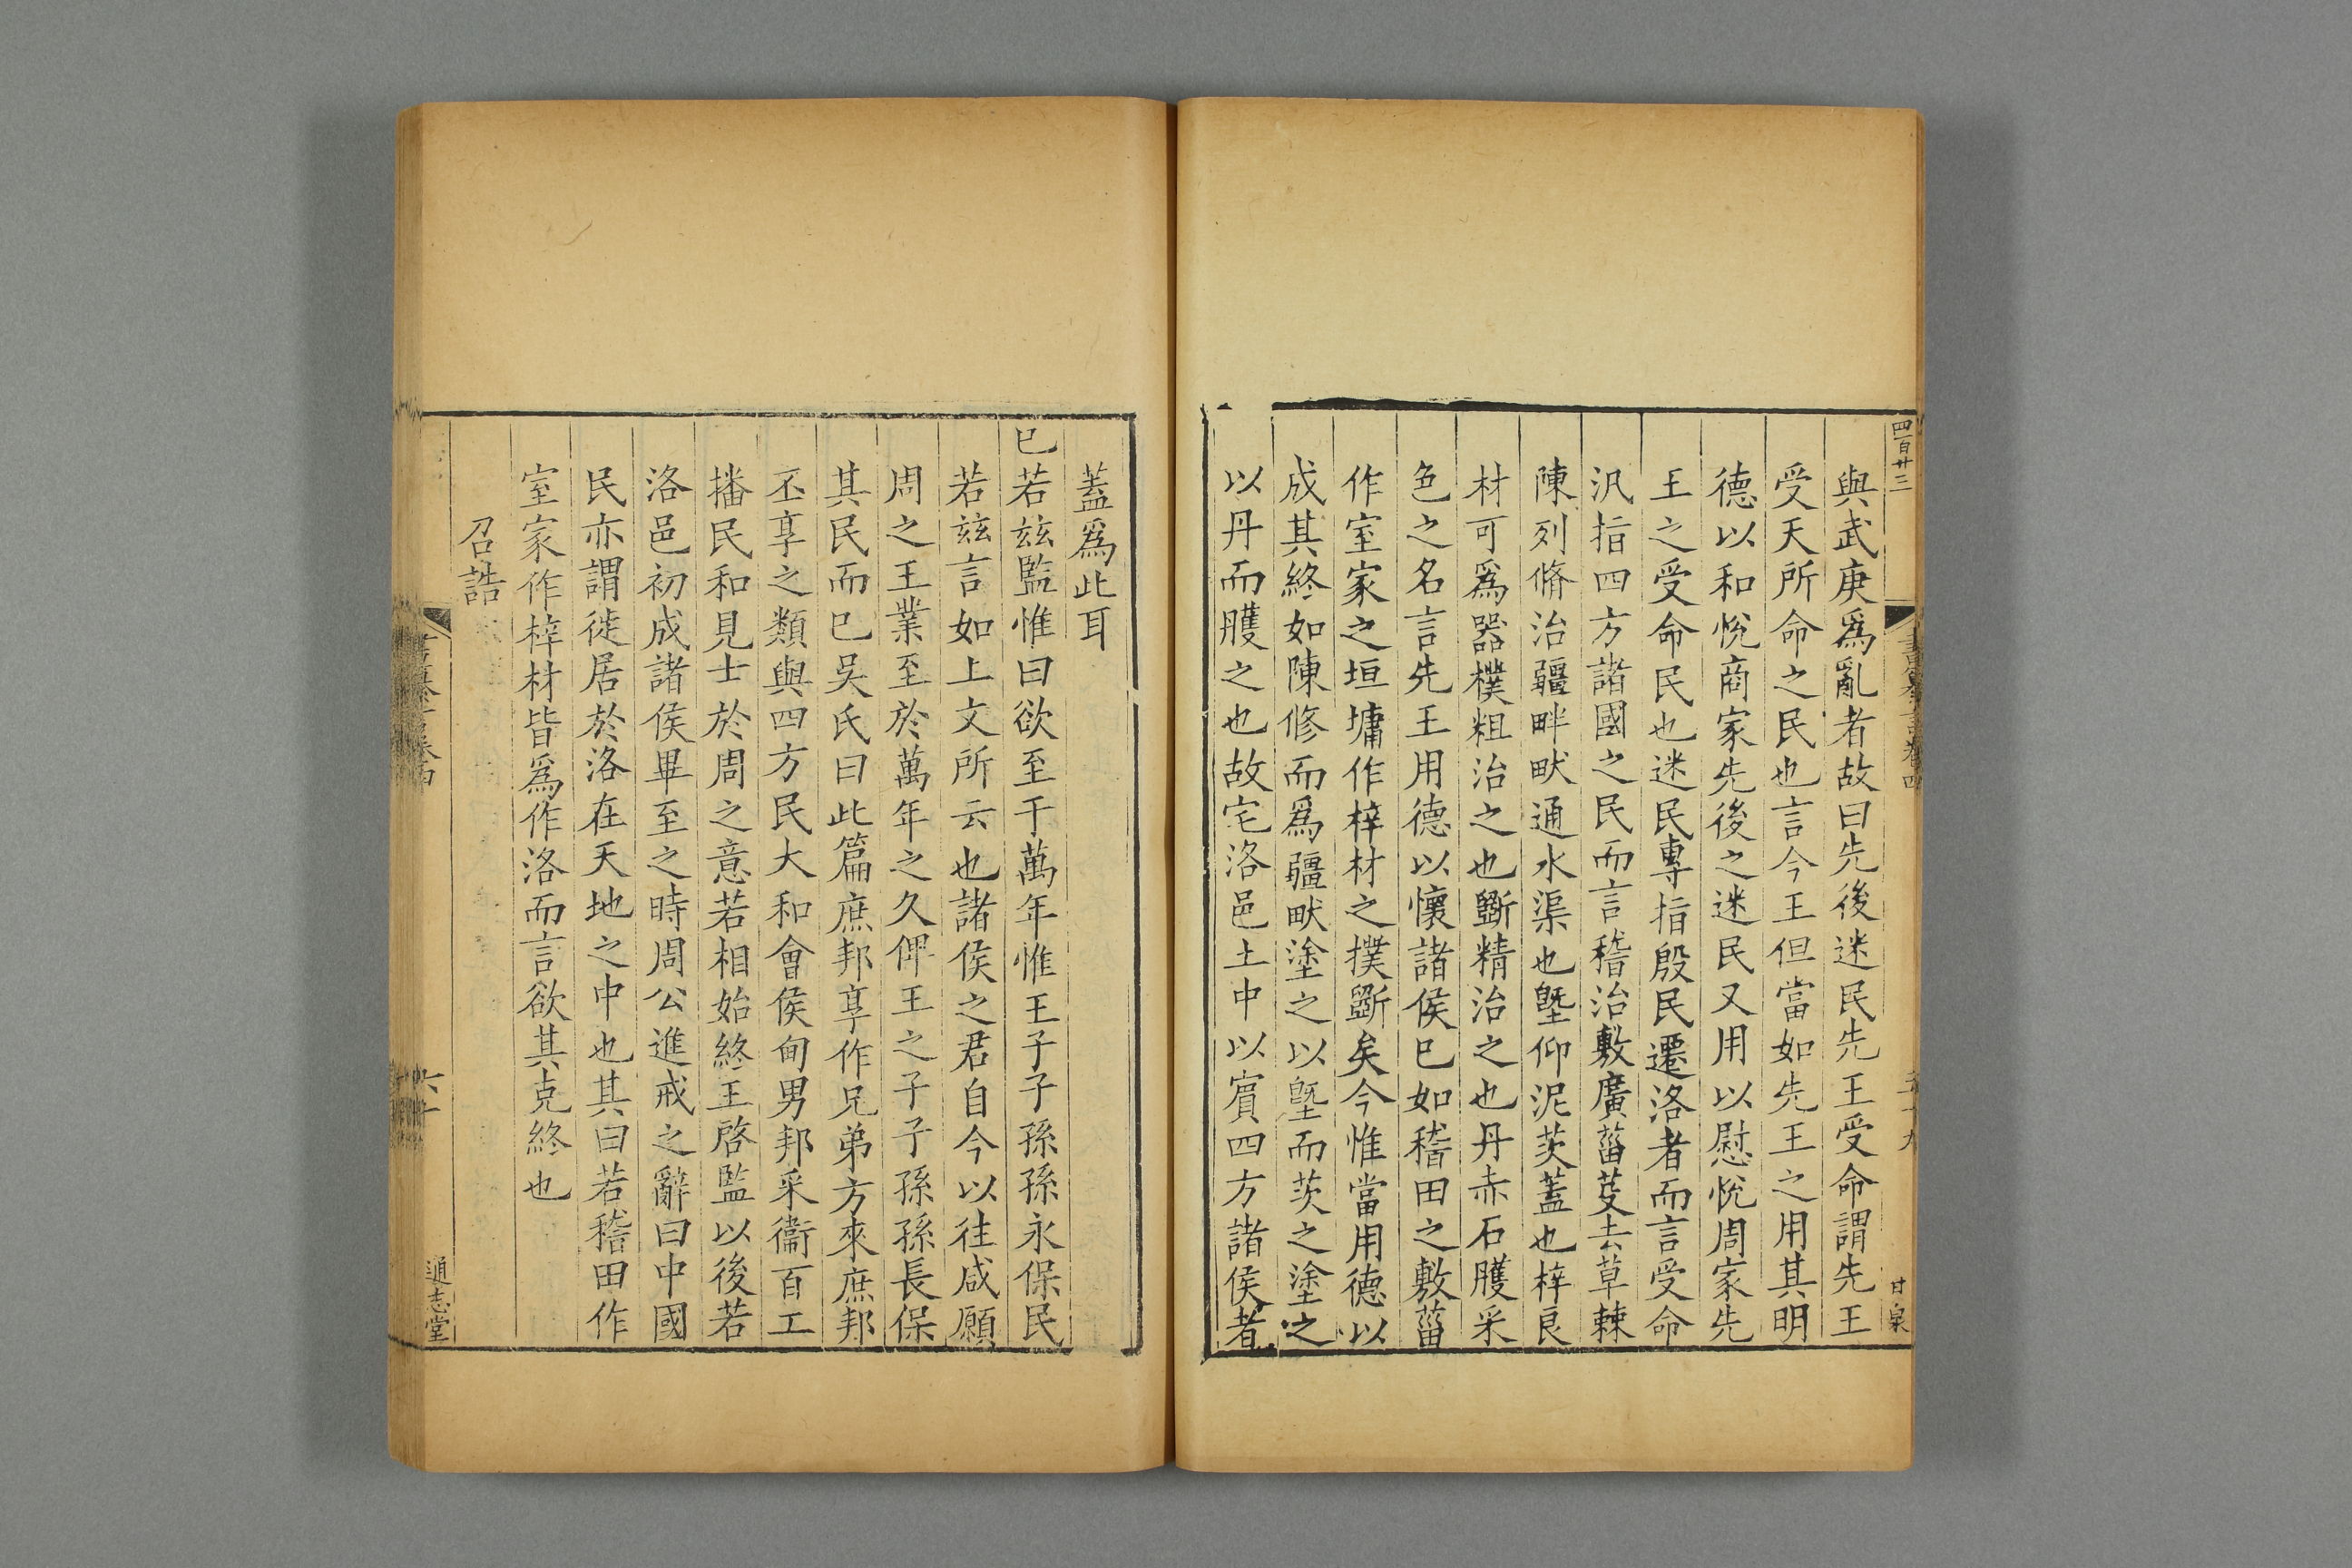 四百廿三
書纂言卷四
五十九
甘泉
與武庚爲亂者故曰先後迷民先王受命謂先王
受天所命之民也言今王但當如先王之用其明
德以和悅商家先後之迷民又用以慰悅周家先
王之受命民也迷民專指殷民遷洛者而言受命
汎指四方諸國之民而言稽治敷廣菑芟去草棘
陳列脩治疆畔畎通水渠也塈仰泥茨蓋也梓良
材可爲器樸粗治之也斲精治之也丹赤石雘采
色之名言先王用德以懷諸侯已如稽田之敷菑
作室家之垣墉作梓材之撲斲矣今惟當用德以
成其終如陳修而爲疆畎塗之以塈而茨之塗之
以丹而雘之也故宅洛邑土中以賓四方諸侯者
蓋爲此耳
已若玆監惟曰欲至于萬年惟王子子孫孫永保民
若玆言如上文所云也諸侯之君自今以往咸願
周之王業至於萬年之久俾王之子子孫孫長保
其民而已吳氏曰此篇庶邦享作兄弟方來庶邦
丕享之類與四方民大和會侯甸男邦采衞百工
播民和見士於周之意若相始終王啓監以後若
洛邑初成諸侯畢至之時周公進戒之辭曰中國
民亦謂徙居於洛在天地之中也其曰若稽田作
室家作梓材皆爲作洛而言欲其克終也
召誥
書纂言卷四
六十
通志堂